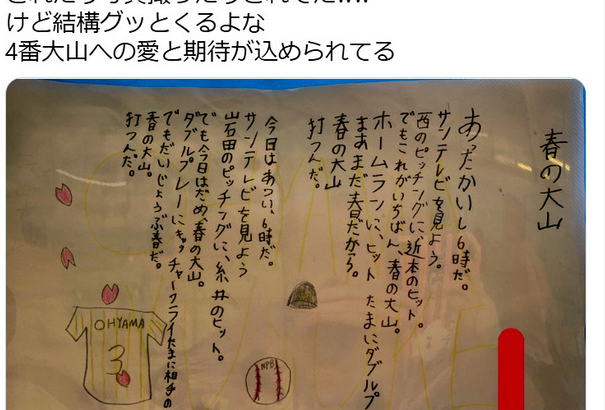 けど結構グッとくるよな
4番大山への愛と期待が込められてる
春の大山
あったかいし6時だ。
サンテレビを見よう。
西のピッチングに、近本のヒット。
でもこれがいちばん、春の大山。
ホームランに、ヒット たまにダブルプ
まあまだ春だから。
春の大山
打つんだ。
今日はあつい、6時だ。
サンテレビを見よう
岩田のピッチングに、糸井のヒット。
でも今日はだめ、春の大山。
ダブルプレーに、キャッチャーフライたまに相手の
でもだいじょうぶ春だ。
春の大山。
打つんだ。
OHYAMA
3
NPB